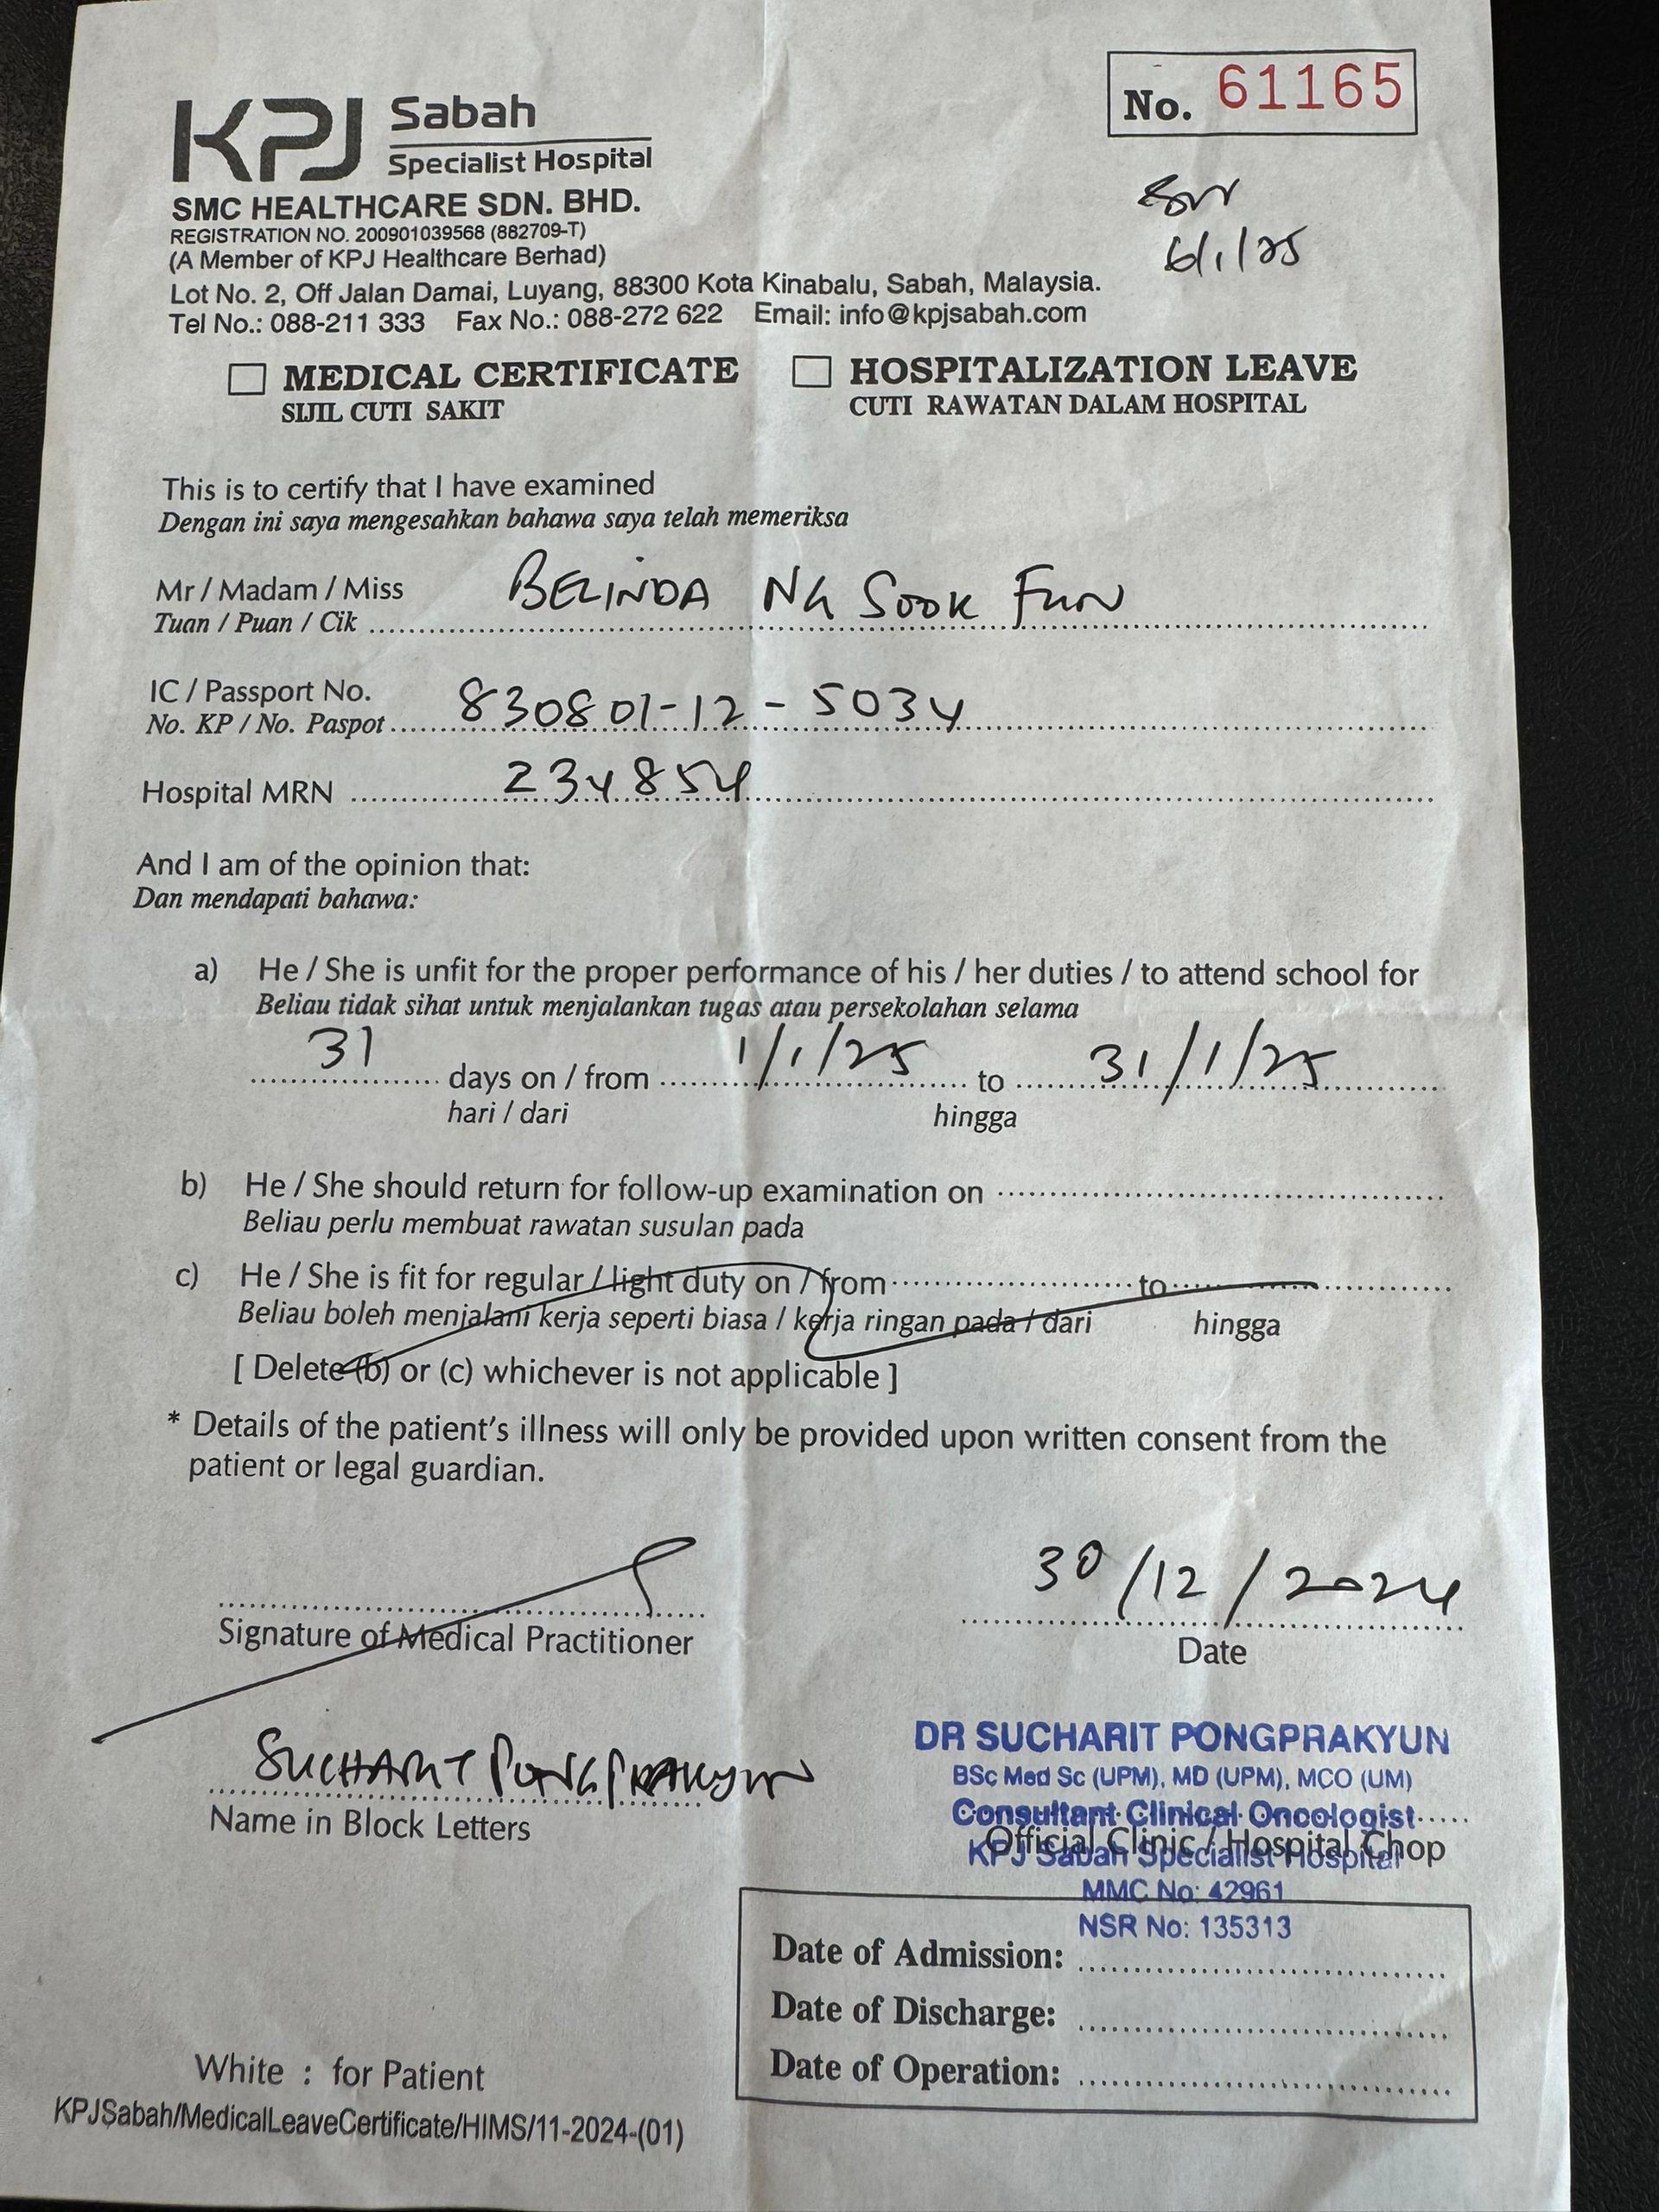 No. 61165
KPJ Sabah
Specialist Hospital
SMC HEALTHCARE SDN. BHD.
REGISTRATION NO. 200901039568 (882709-T)
(A Member of KPJ Healthcare Berhad)
Lot No. 2, Off Jalan Damai, Luyang, 88300 Kota Kinabalu, Sabah, Malaysia.
Tel No.: 088-211 333 Fax No.: 088-272 622 Email: info@kpjsabah.com
6/1/25
MEDICAL CERTIFICATE HOSPITALIZATION LEAVE
SIJIL CUTI SAKIT CUTI RAWATAN DALAM HOSPITAL
This is to certify that I have examined
Dengan ini saya mengesahkan bahawa saya telah memeriksa
Mr / Madam / Miss BELINDA NG SOOK FUN
Tuan / Puan / Cik
IC / Passport No. 830801-12-5034
No. KP / No. Paspot
Hospital MRN 234854
And I am of the opinion that:
Dan mendapati bahawa:
a) He / She is unfit for the proper performance of his / her duties / to attend school for
Beliau tidak sihat untuk menjalankan tugas atau persekolahan selama
31 days on / from 1/1/25 to 31/1/25
hari / dari hingga
b) He / She should return for follow-up examination on
Beliau perlu membuat rawatan susulan pada
c) He / She is fit for regular / light duty on / from to
Beliau boleh menjalani kerja seperti biasa / kerja ringan pada / dari hingga
[ Delete (b) or (c) whichever is not applicable ]
* Details of the patient's illness will only be provided upon written consent from the
patient or legal guardian.
30/12/2024
Signature of Medical Practitioner Date
SUCHARIT PONGPRAKYUN
Name in Block Letters
DR SUCHARIT PONGPRAKYUN
BSc Med Sc (UPM), MD (UPM), MCO (UM)
Consultant Clinical Oncologist
Official Clinic / Hospital Chop
KPJ Sabah Specialist Hospital
MMC No: 42961
NSR No: 135313
Date of Admission:
Date of Discharge:
Date of Operation:
White : for Patient
KPJSabah/MedicalLeaveCertificate/HIMS/11-2024-(01)